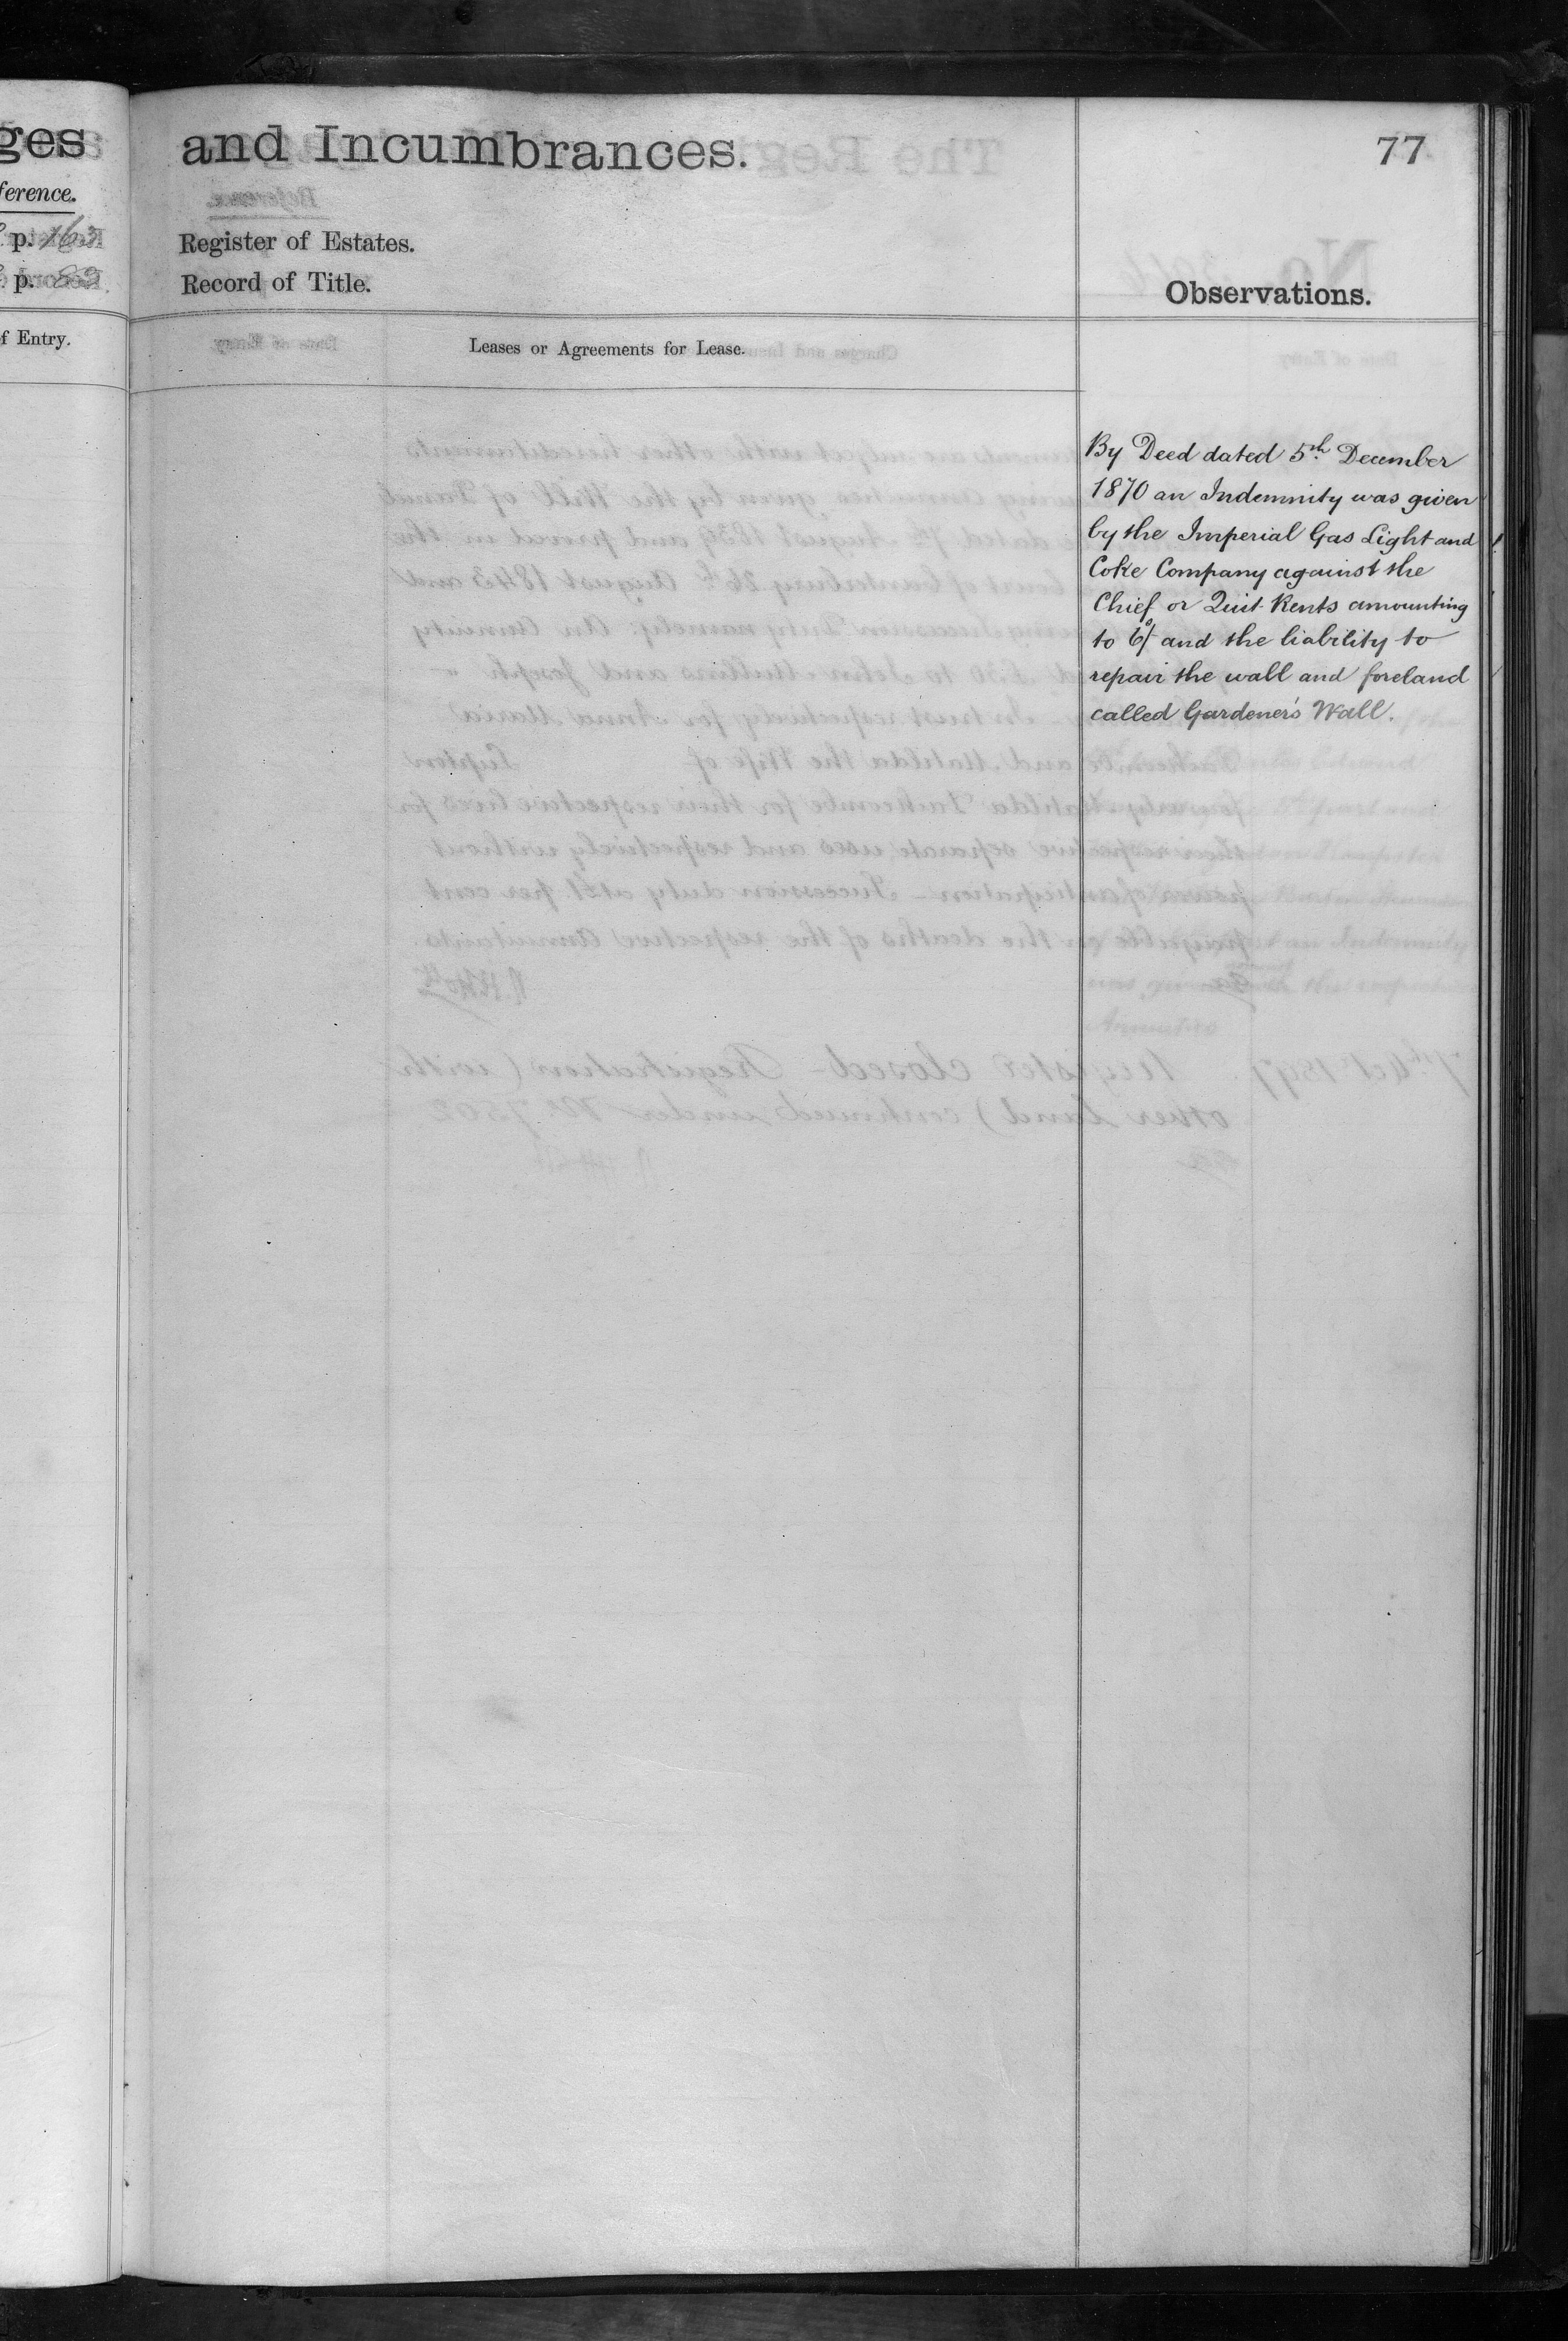 ges
ference.
p. 163
p.
f Entry.
and Incumbrances.
77
Register of Estates.
Record of Title.
Observations.
Leases or Agreements for Lease.
By Deed dated 5th December
1870 an Indemnity was given
by the Imperial Gas Light and
Coke Company against the
Chief or Quit Rents amounting
to 6/- and the liability to
repair the wall and foreland
called Gardener's Wall.